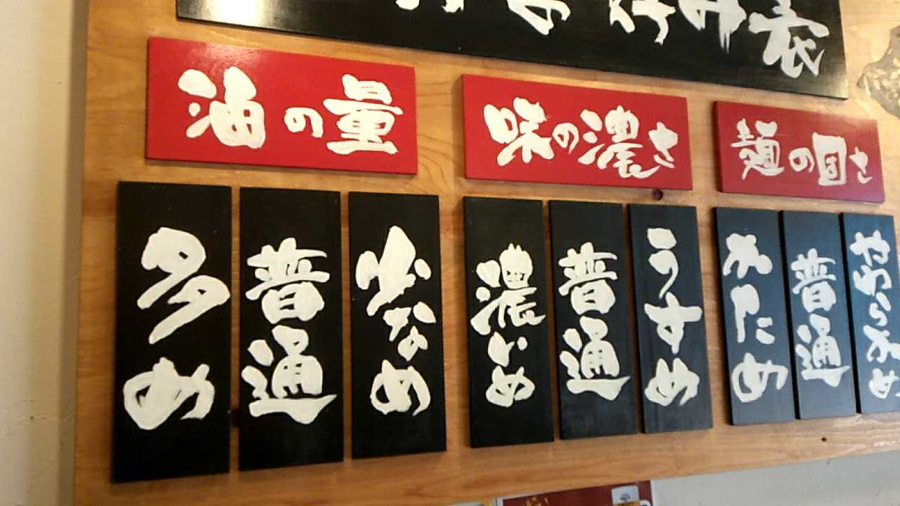 お好み表
油の量
多め
普通
少なめ
味の濃さ
濃いめ
普通
うすめ
麺の固さ
かため
普通
やわらかめ